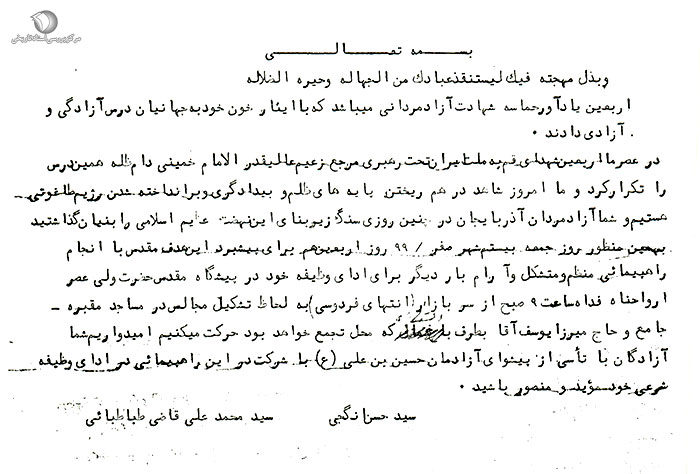 مرکز بررسی اسناد تاریخی
بسمه تعالی
وبذل مهجته فیك لیستنقذعبادك من الجهاله وحیره الضلاله
اربعین یادآورحماسه شهادت آزادمردانی میباشد که با ایثار خون خودبه جهانیان درس آزادگی و
آزادی دادند ۰
در عصرما اربعین شهدای قم به ملت ایران تحت رهبری مرجع زعیم عالیقدر الامام خمینی دام ظله همین درس
را تکرار کرد و ما امروز شاهد در هم ریختن پایه های ظلم و بیدادگری وبرانداخته شدن رژیم طاغوتی
هستیم و شما آزادمردان آذربایجان در چنین روزی سنگ زیربنای این نهضت عظیم اسلامی را بنیان گذاشتید
بهمین منظور روز جمعه بیستم شهر صفر / ۹۹ روز اربعین هم برای پیشبرد این هدف مقدس با انجام
راهپیمائی منظم ومتشکل وآرام بار دیگر برای ادای وظیفه خود در پیشگاه مقدس حضرت ولی عصر
ارواحنا فداه ساعت ۹ صبح از سر بازار (انتهای فردوسی) به لحاظ تشکیل مجالس در مساجد مقبره -
جامع و حاج میرزا یوسف آقا بطرف که محل تجمع خواهد بود حرکت میکنیم امیدواریم شما
آزادگان با تأسی از پیشوای آزادمان حسین بن علی (ع) با شرکت در این راهپیمائی در ادای وظیفه
شرعی خود مؤید و منصور باشید ۰
سید حسن انگجی سید محمد علی قاضی طباطبائی